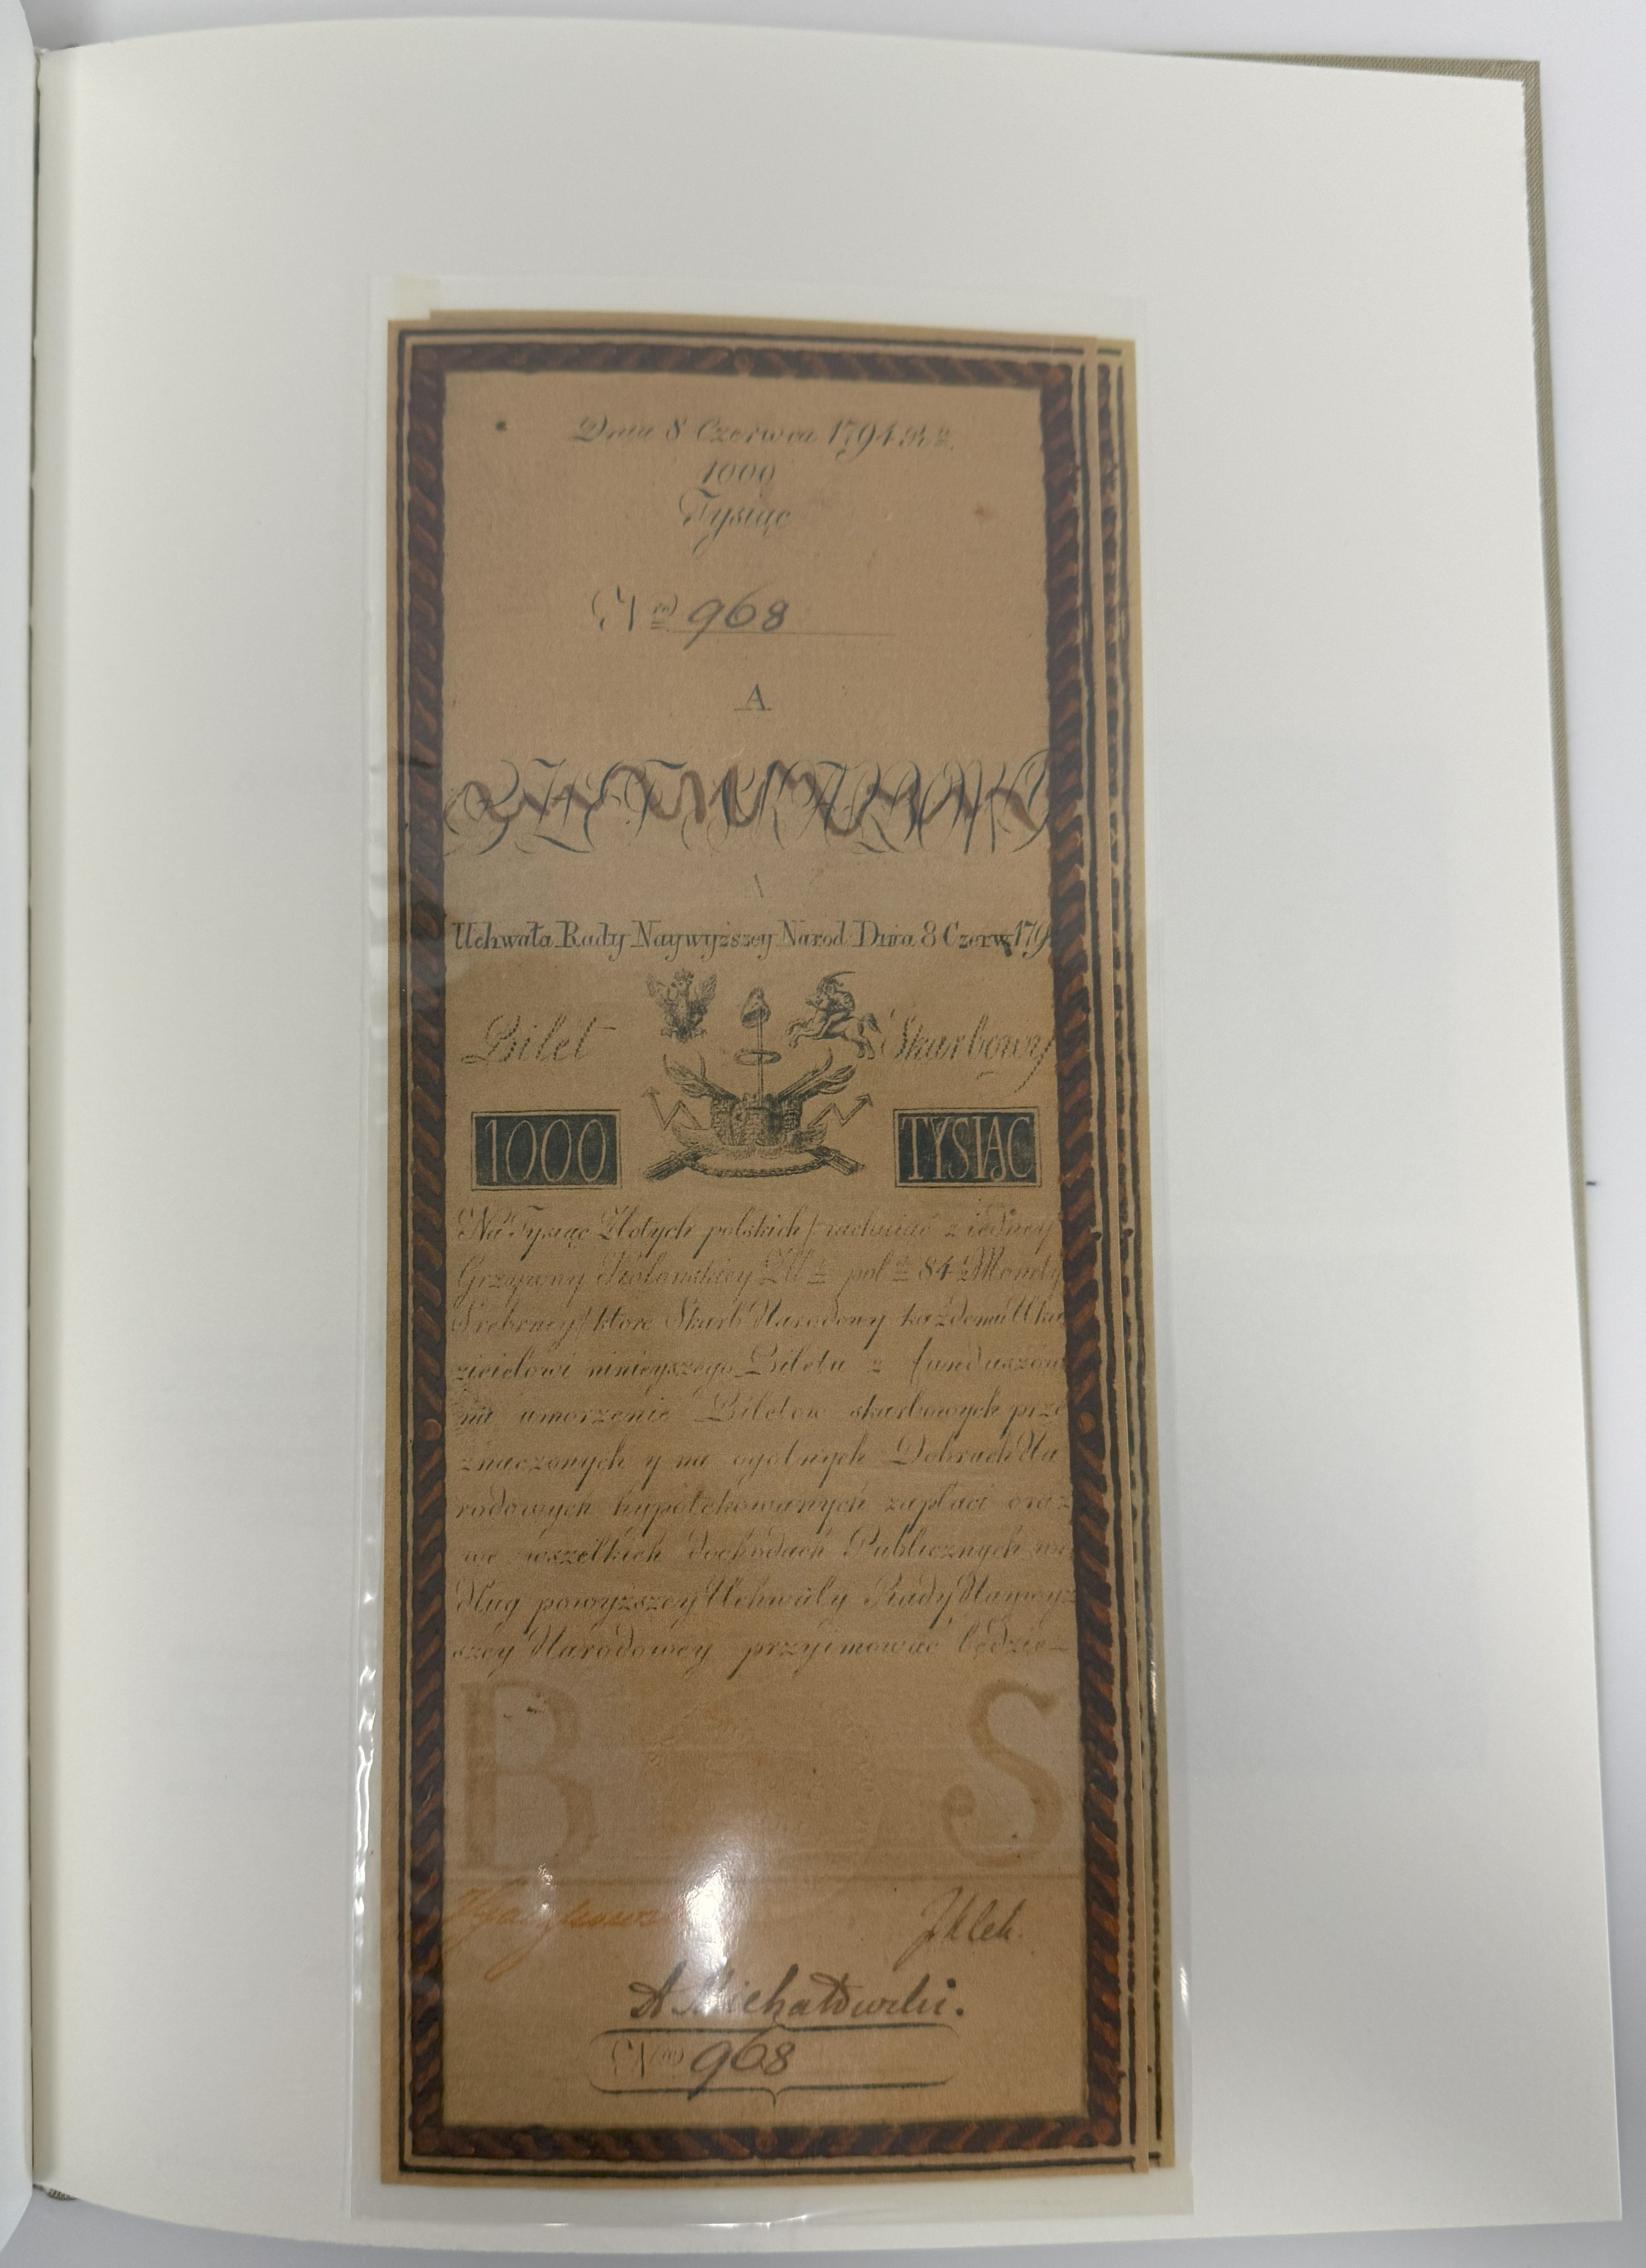 Dnia 8 Czerwca 1794 R.
1000
Tysiąc
N 968
A
Uchwała Rady Naywyższey Narod: Dnia 8 Czerw: 179
Bilet Skarbowy
1000 TYSIĄC
Na Tysiąc Złotych polskich / rachuiąc z iedney
Grzywny Kolońskiey pol 84 Monety
Srebrney / ktore Skarb Narodowy każdemu Uka
zicielowi ninieyszego Biletu z funduszów
na umorzenie Biletow skarbowych prze
znaczonych y na ogolnych Dobrach Na
rodowych hypotekowanych zapłaci oraz
we wszelkich dochodach Publicznych we
dług powyższey Uchwały Rady Naywyż
szey Narodowey przyimować będzie
B S
A Michałowski.
N 968